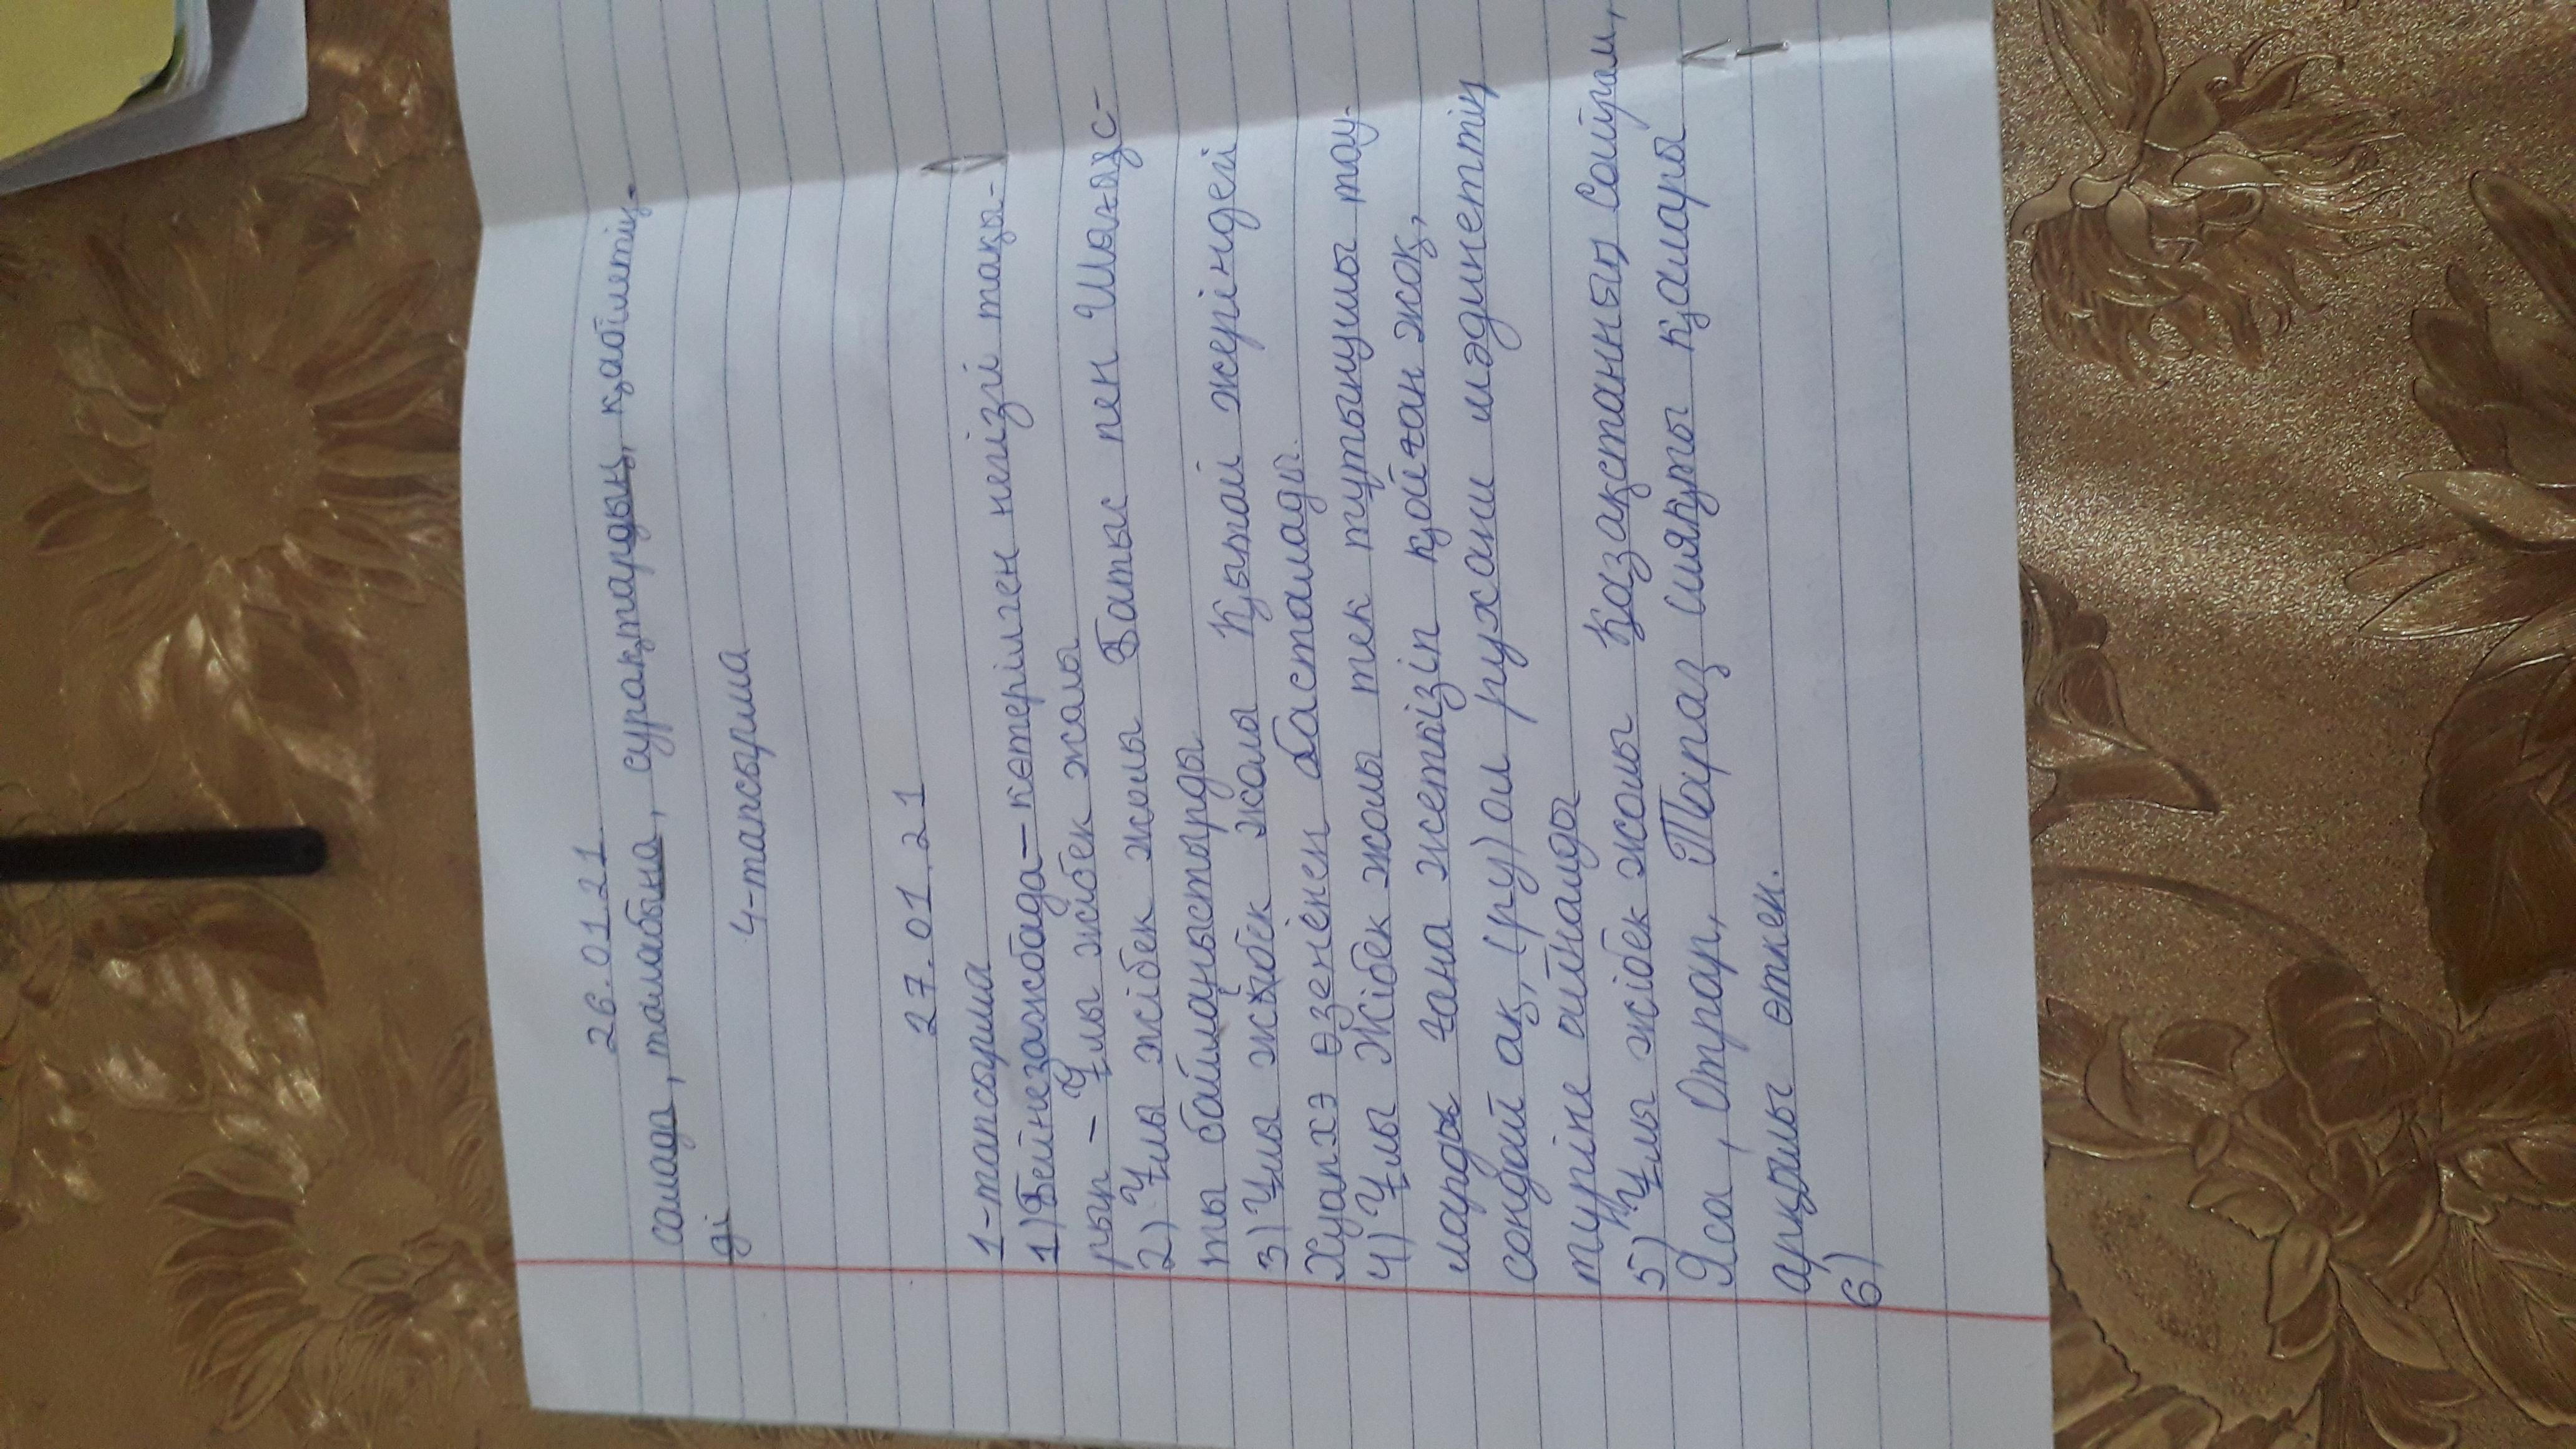 26.01.21
салада, талабына, сурақтардың, қабілетің-
ді
4-тапсырма
27.01.21
1-тапсырма
1) Бейнезажбада-көтерілген негізгі тақы-
рып - Ұлы жібек жолы
2) Ұлы жібек жолы Батыс пен Шығыс-
ты байланыстырды
3) Ұлы жібек жолы Қытай жеріндегі
Хуанхэ өзенінен басталады.
4) Ұлы Жібек жолы тек тұтынушы тау-
ларды ғана жеткізіп қойған жоқ,
сондай ақ, (ру) ол рухани мәдинеттің
түріне айналды
5) Ұлы жібек жолы Қазақстанның Сайрам,
Яса, Отрар, Тараз сияқты қалары
арқылы өткен.
6)